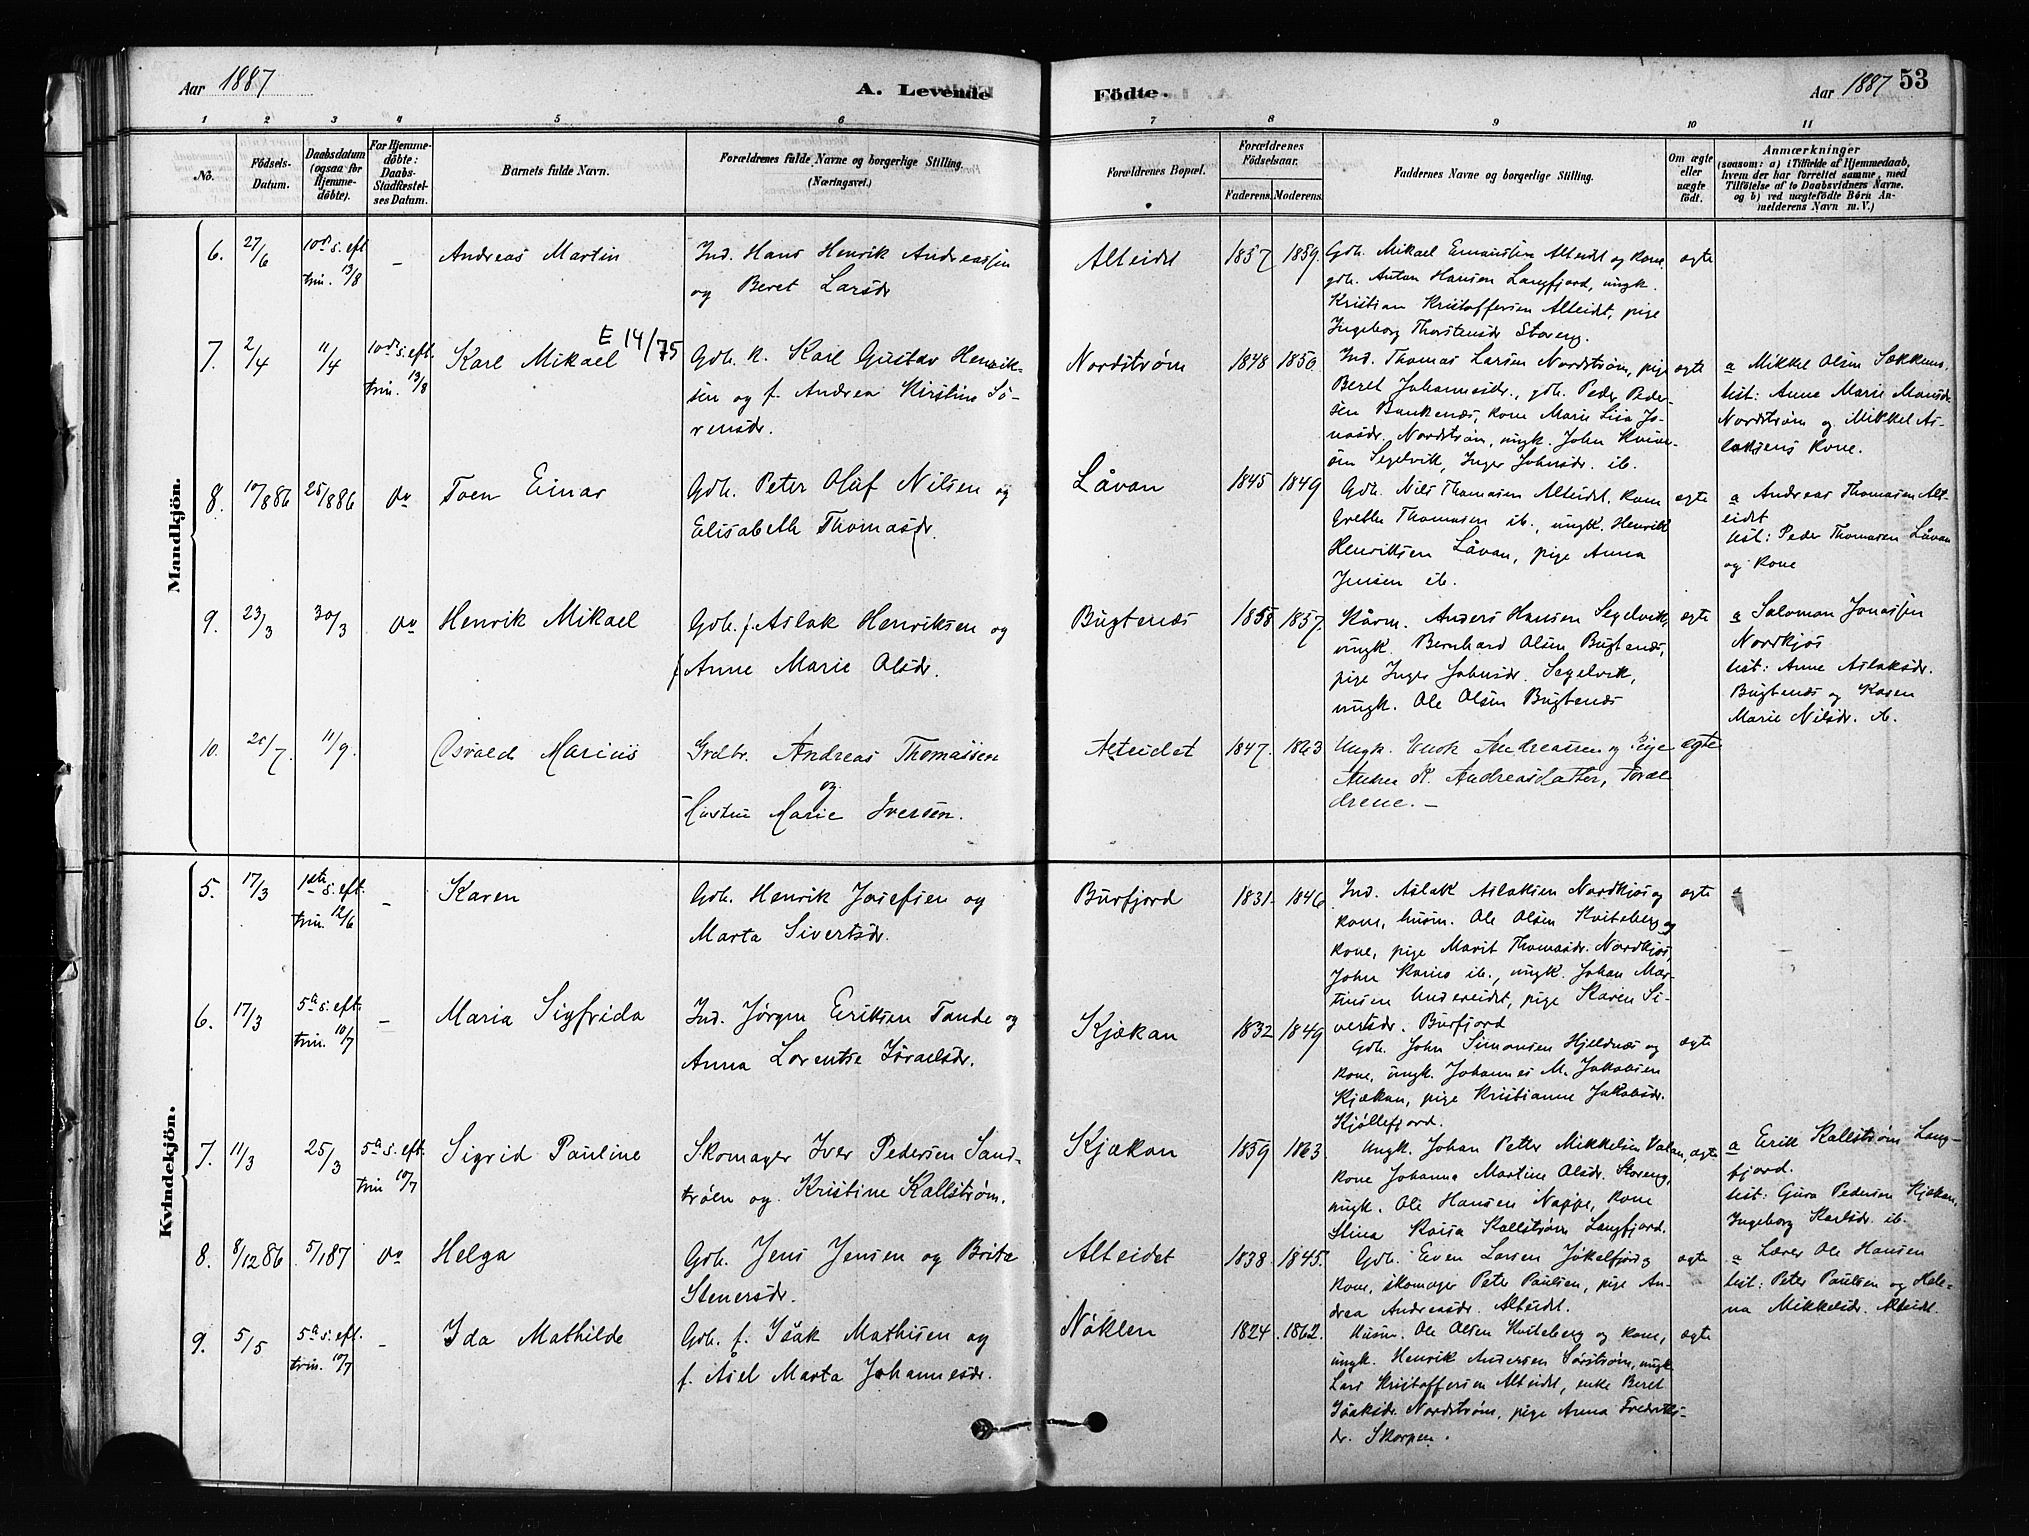 Aar 1887
A. Levende
Födte.
Aar 1887 53
1 2 3 4 5 6 7 8 9 10 11
No.
Födsels-Datum.
Daabsdatum (ogsaa for Hjemme-döbte).
For Hjemme-döbte: Daabs-Stadfæstel-ses Datum.
Barnets fulde Navn.
Forældrenes fulde Navne og borgerlige Stilling. (Næringsvei.)
Forældrenes Bopæl.
Forældrenes Födselsaar.
Faderens. Moderens.
Faddernes Navne og borgerlige Stilling.
Om ægte eller uægte födt.
Anmærkninger
(saasom: a) i Tilfælde af Hjemmedaab,
hvem der har forrettet samme, med
Tilföielse af to Daabsvidners Navne.
og b) ved uægtefödte Börn An-
melderens Navn m. V.)
Mandkjön.
6. 27/6 10de s. eft. trin. 13/8 – Andreas Martin
Ind. Hans Henrik Andreassen
og Beret Larsdr
Alteidet 1857 1859.
Gdb. Mikael Emanuelsen Alteidet og kone,
gdb. Anton Hansen Langfjord, ungk.
Kristian Kristoffersen Alteidet, pige
Ingeborg Thorstensdr Storeng.
ægte
7. 2/4 11/4 10de s. eft. trin. 13/8 Karl Mikael E 14/75
Gdb. k. Karl Gustav Henrik-
sen og f. Andrea Kirstine Sö-
rensdr.
Nordström 1848 1850.
Ind. Thomas Larsen Nordström, pige
Beret Johannesdr., gdb. Peder Peder-
sen Bankenæs, kone Marie Lisa Jo-
nasdr. Nordström, ungk. John
Segelvik, Inger Johnsdr. ib.
ægte
a Mikkel Olsen
test: Anne Marie Monsdr.
Nordström og Mikkel As-
laksens kone.
8. 10/886 25/886 do Toen Einar
Gdb. Peter Oluf Nilsen og
Elisabeth Thomasdr.
Låvan 1845 1849
Gdb. Nils Thomasen Alteidet, kone
Grethe Thomasen ib., ungk. Henrik
Henriksen Låvan, pige Anna
Jensen ib.
ægte
a Andreas Thomasen Alt-
eidet
test: Peder Thomasen Låvan
og kone
9. 23/3 30/3 do Henrik Mikael
Gdb. f. Aslak Henriksen og
f. Anne Marie Olsdr.
Bugtenæs 1858 1857.
Anders Hansen Segelvik,
ungk. Bernhard Olsen Bugtenæs,
pige Inger Johnsdr. Segelvik,
ungk. Ole Olsen Bugtenæs
ægte
a Salomon Jonassen
Nordkjos
test: Anne Aslaksdr.
Bugtenæs og Karen
Marie Nilsdr. ib.
10. 20/7. 11/9. Osvald Marius
Grdbr. Andreas Thomassen
og
Hustru Marie Iversen.
Alteidet 1847. 1863
Ungk. Enok Andreassen og Pige
Anna K. Andreasdatter, Foræl-
drene. –
ægte
Kvindekjön.
5. 17/3 1ste s. eft. trin. 12/6 – Karen
Gdb. Henrik Josefsen og
Marta Sivertsdr.
Burfjord 1831. 1846.
Ind. Aslak Aslaksen Nordkjos og
kone, husm. Ole Olsen Kviteberg og
kone, pige Marit Thomasdr. Nordkjos,
John ib., ungk. Johan Mar-
tinsen Undereidet, pige Karen Si-
vertsdr. Burfjord
ægte a
6. 17/3 5te s. eft. trin. 10/7 – Maria Sigfrida
Ind. Jörgen Eriksen Tande og
Anna Lorentse Israelsdr.
Kjækan 1832 1849
Gdb. John Simonsen Hjeldnæs og
kone, ungk. Johannes M. Jakobsen
Kjækan, pige Kristianne Jakobsdr.
Kjöllefjord.
ægte
7. 11/3 25/3 5te s. eft. trin 10/7 Sigrid Pauline
Skomager Iver Pedersen Sand-
tröen og Kristine Kallström.
Kjækan 1859 1863.
Ungk. Johan Petter Mikkelsen
kone Johanna Martine Olsdr. Storeng,
ungk. Ole Hansen Nappe, kone
Stina Kaisa Kallström Langfjord.
ægte
a Erik Kallström Lang-
fjord.
test: Guro Pedersen Kjækan,
Ingeborg Karlsdr. ib.
8. 8/1286 5/187 do Helga
Gdb. Jens Jensen og Brita
Stenersdr.
Alteidet 1838. 1845.
Gdb. Even Larsen Jökelfjord og
kone, skomager Peter Paulsen, pige An-
drea Andreasdr. Alteidet.
ægte
a Lærer Ole Hansen
test: Peter Paulsen og Hele-
na Mikkelsdr. Alteidet.
9. 5/5 5te s. eft. trin. 10/7 – Ida Mathilde
Gdb. f. Isak Mathisen og
f. Asel Marta Johannesdr.
Nöklen 1824. 1862.
Husm. Ole Olsen Kviteberg og kone,
ungk. Henrik Andersen Sörström, ungk.
Lars Kristoffersen Alteidet, enke Beret
Isaksdr. Nordström, pige Anna Fredriks-
dr. Skorpen.
ægte